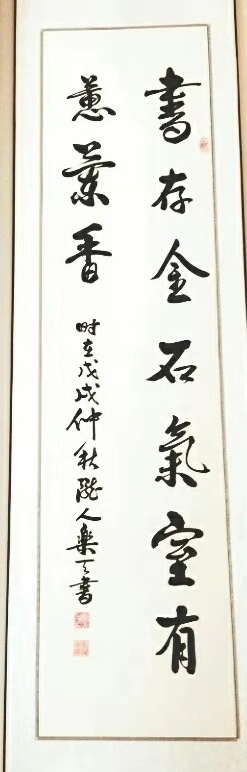 書存金石氣室有
蕙蘭香
时在戊戌仲秋陇人樂天書